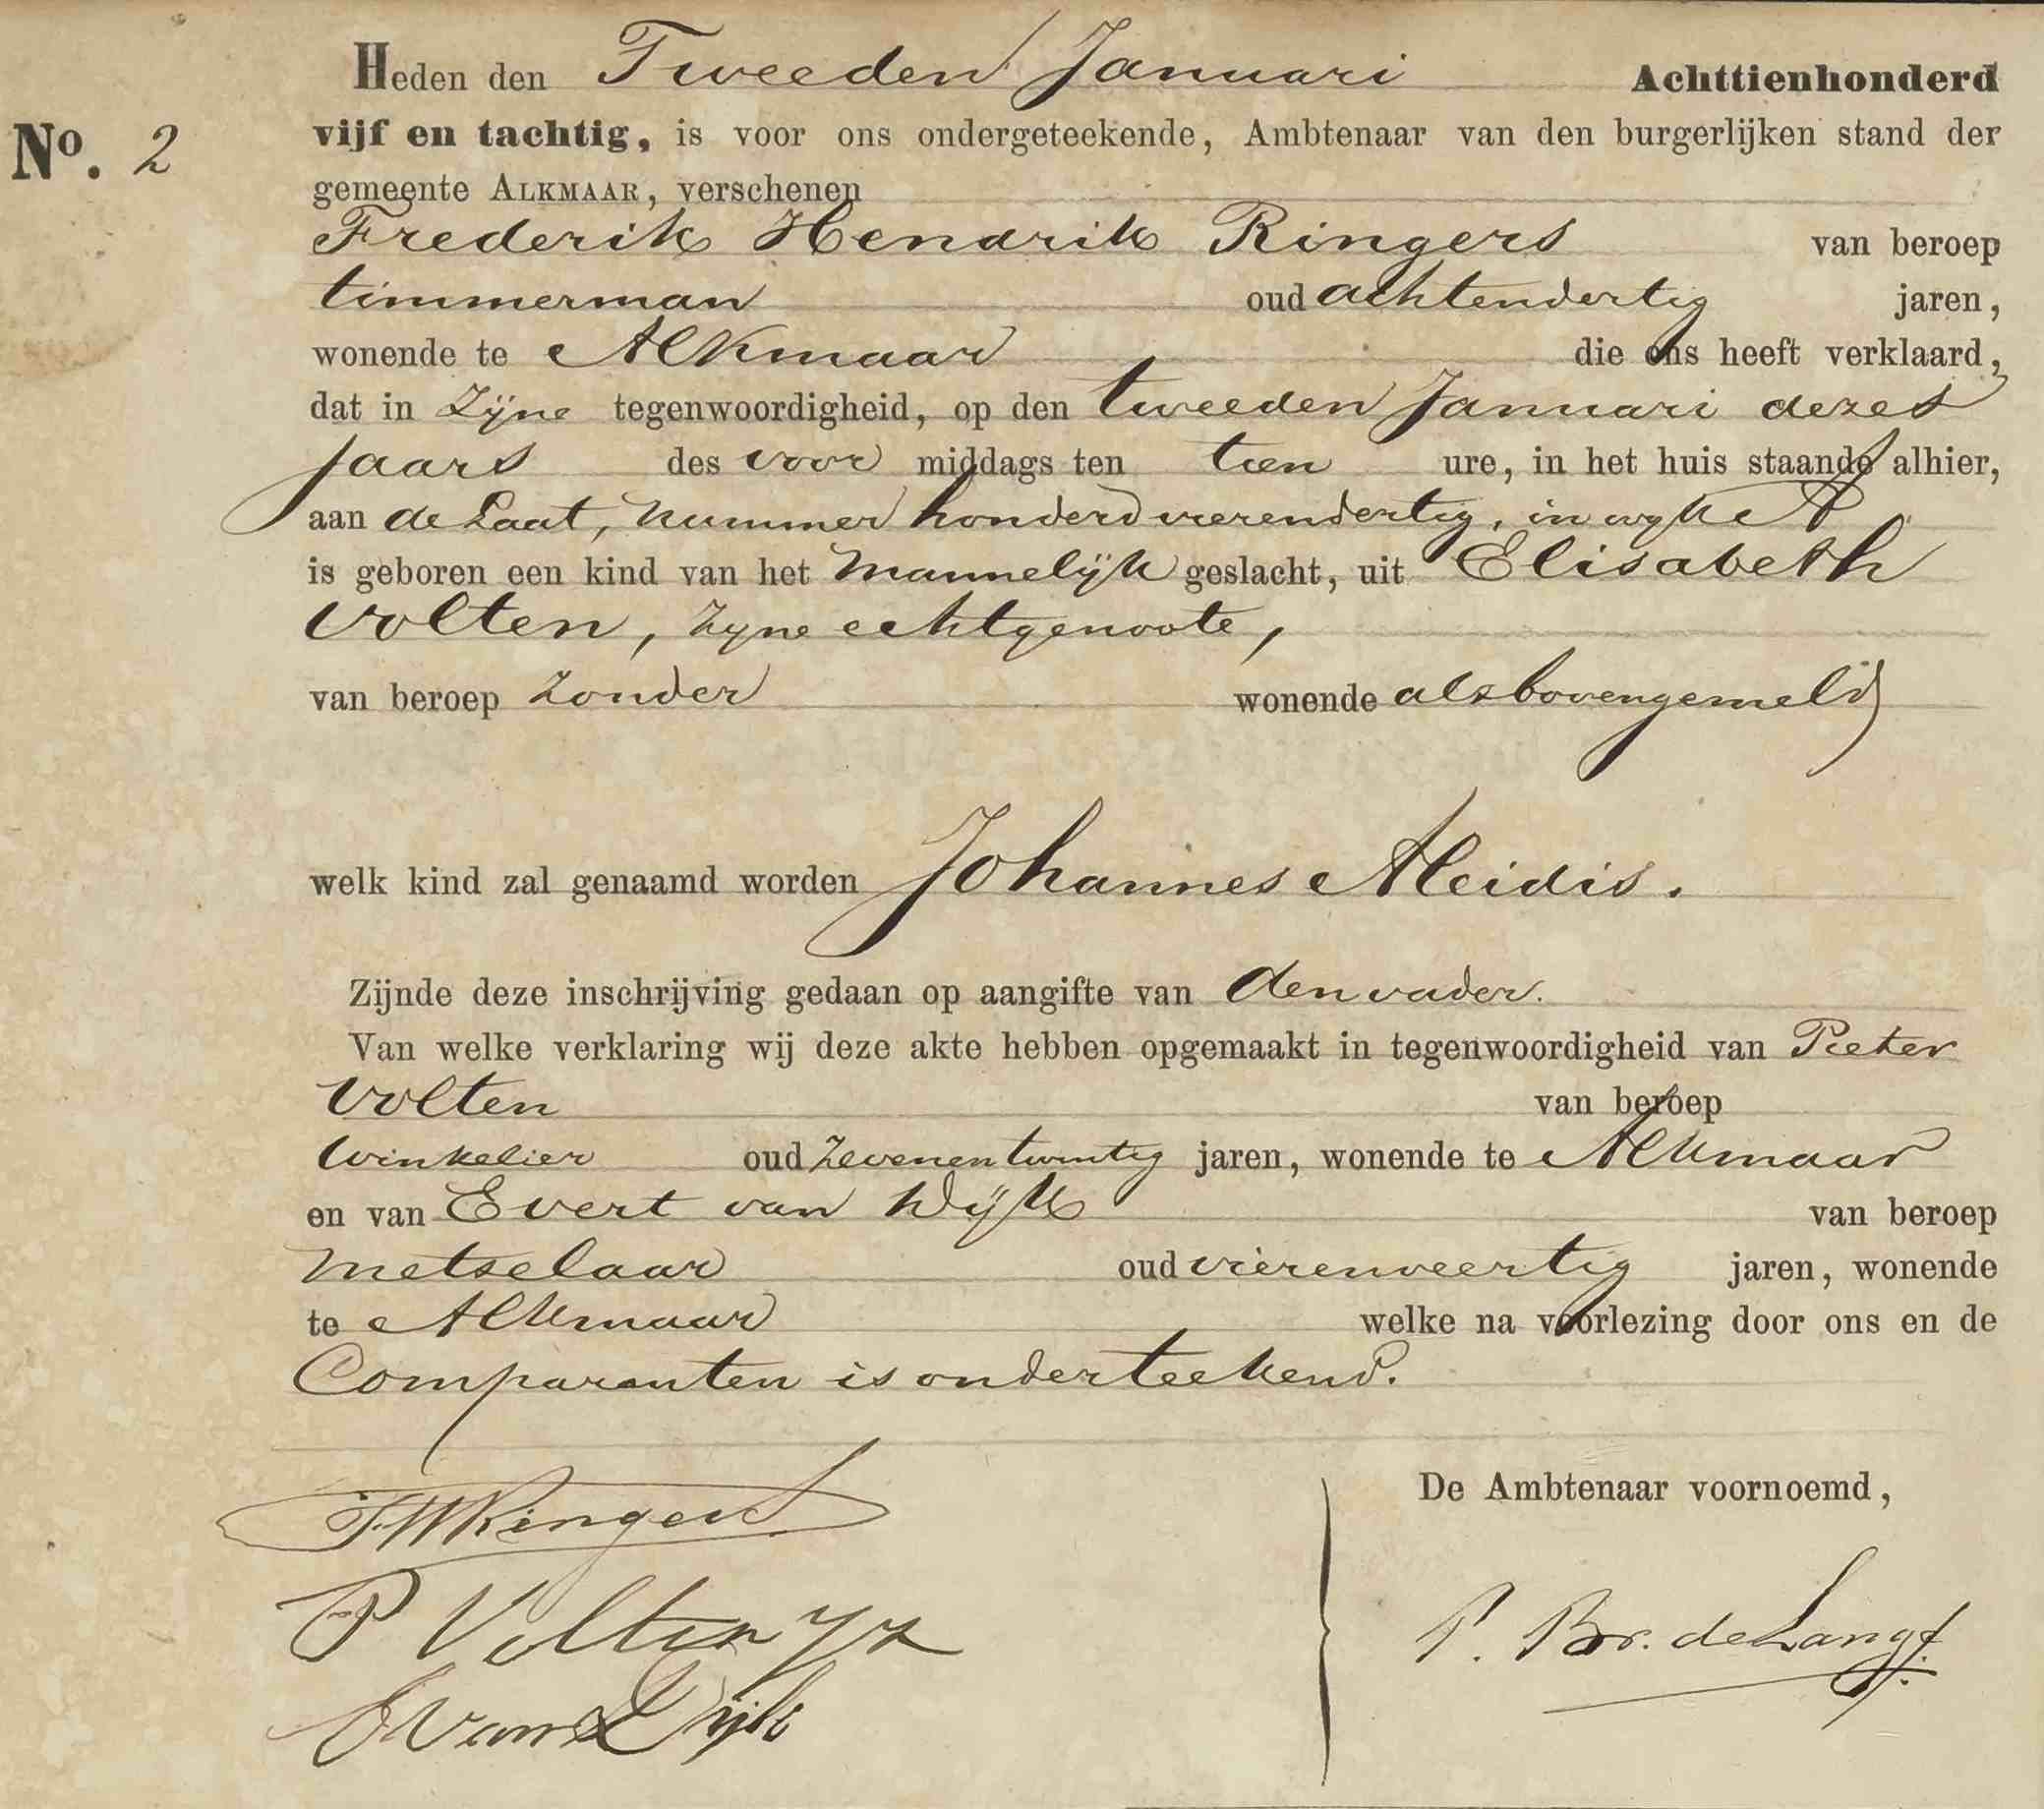 Heden den Tweeden Januari Achttienhonderd
No. 2 vijf en tachtig, is voor ons ondergeteekende, Ambtenaar van den burgerlijken stand der
gemeente ALKMAAR, verschenen
Frederik Hendrik Ringers van beroep
timmerman oud achtendertig jaren,
wonende te Alkmaar die ons heeft verklaard,
dat in Zijne tegenwoordigheid, op den tweeden Januari dezes
jaars des voor middags ten tien ure, in het huis staande alhier,
aan de Laat, nummer honderd vierendertig, in wyk A
is geboren een kind van het Mannelijk geslacht, uit Elisabeth
Volten, zyne echtgenoote,
van beroep Zonder wonende als bovengemeld
welk kind zal genaamd worden Johannes Aleidis.
Zijnde deze inschrijving gedaan op aangifte van den vader.
Van welke verklaring wij deze akte hebben opgemaakt in tegenwoordigheid van Pieter
Volten van beroep
Winkelier oud Zevenentwintig jaren, wonende te Alkmaar
en van Evert van Wijk van beroep
Metselaar oud vierenveertig jaren, wonende
te Alkmaar welke na voorlezing door ons en de
Comparanten is onderteekend.
De Ambtenaar voornoemd,
FHRingers
P Volten
P. Br. de Lange
E Van Wijk